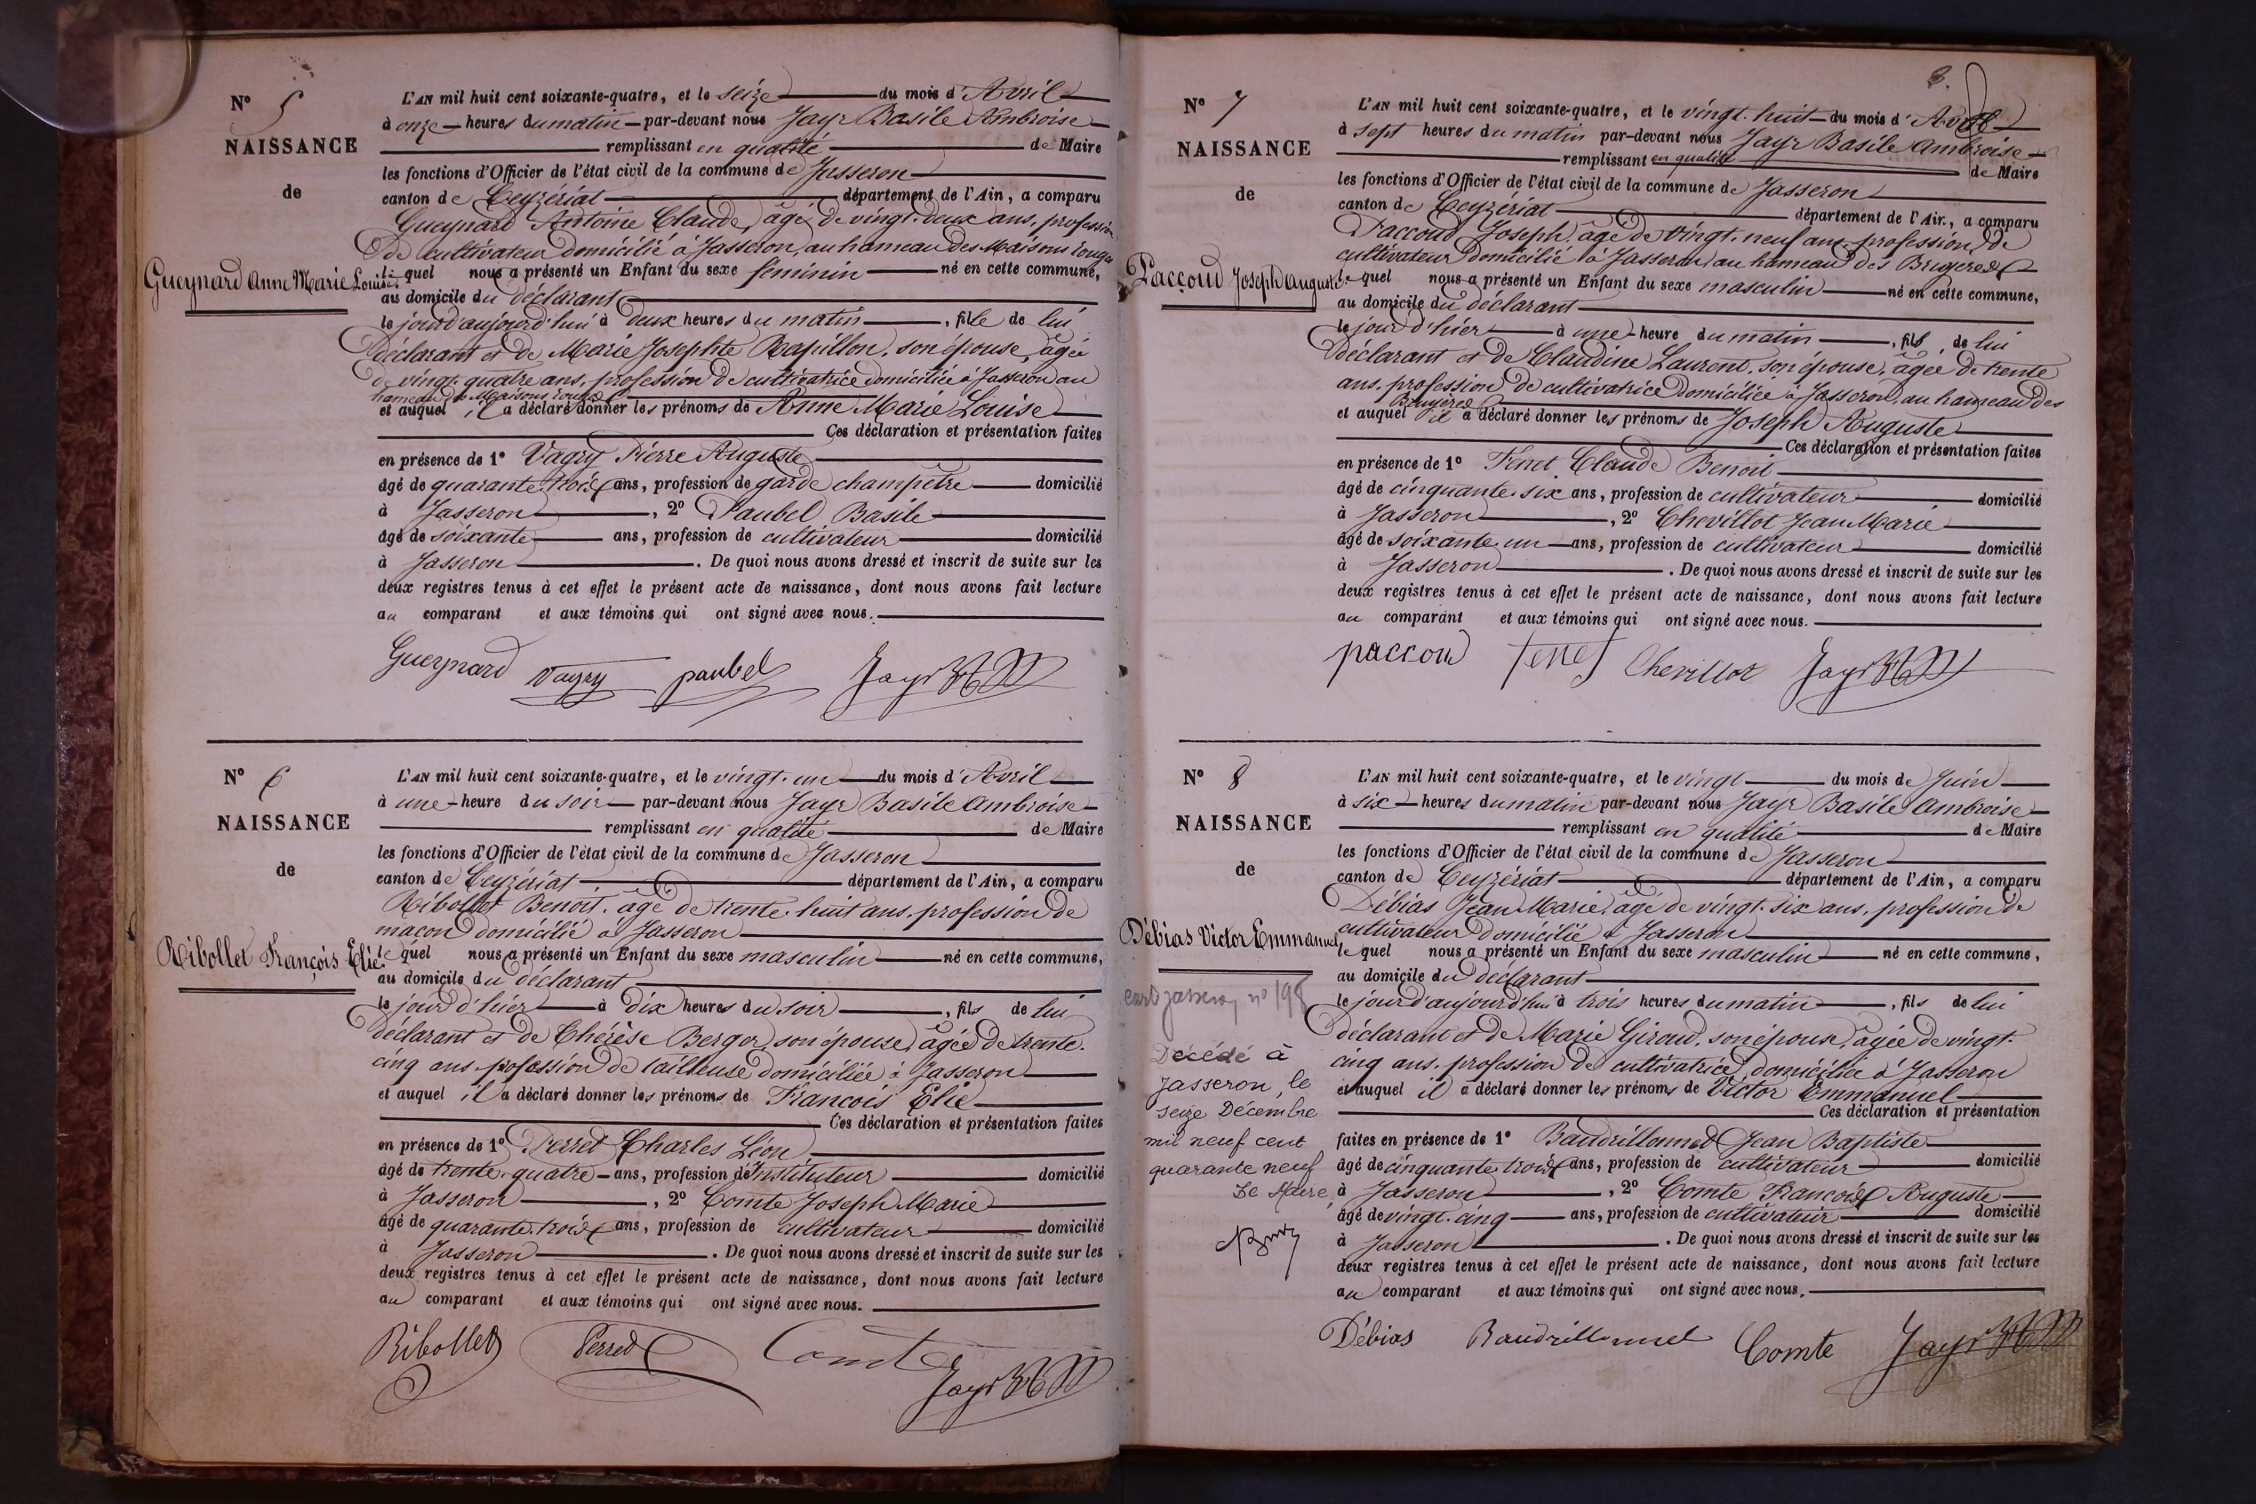 N° 5
NAISSANCE
de
Gueynard Anne Marie Louise
L'AN mil huit cent soixante-quatre, et le seize du mois d'Avril
à onze heures du matin par-devant nous Jayr Basile Ambroise
remplissant en qualité de Maire
les fonctions d'Officier de l'état civil de la commune de Jasseron
canton de Ceyzériat département de l'Ain, a comparu
Gueynard Antoine Claude, âgé de vingt-deux ans, profession
de cultivateur domicilié à Jasseron, au hameau des Maisons rouges
le quel nous a présenté un Enfant du sexe féminin né en cette commune,
au domicile du déclarant
le jour d'aujourd'hui à deux heures du matin, fille de lui
déclarant et de Marie Josephte Rapillon, son épouse, âgée
de vingt-quatre ans, profession de cultivatrice domiciliée à Jasseron au
hameau des Maisons rouges
et auquel il a déclaré donner les prénoms de Anne Marie Louise
Ces déclaration et présentation faites
en présence de 1° Vagry Pierre Auguste
âgé de quarante-trois ans, profession de garde champêtre domicilié
à Jasseron, 2° Paubel Basile
âgé de soixante ans, profession de cultivateur domicilié
à Jasseron. De quoi nous avons dressé et inscrit de suite sur les
deux registres tenus à cet effet le présent acte de naissance, dont nous avons fait lecture
au comparant et aux témoins qui ont signé avec nous.
Gueynard Vagry paubel Jayr
N° 6
NAISSANCE
de
Ribollet François Elie
L'AN mil huit cent soixante-quatre, et le vingt-un du mois d'Avril
à une heure du soir par-devant nous Jayr Basile Ambroise
remplissant en qualité de Maire
les fonctions d'Officier de l'état civil de la commune de Jasseron
canton de Ceyzériat département de l'Ain, a comparu
Ribollet Benoit, âgé de trente-huit ans, profession de
maçon domicilié à Jasseron
le quel nous a présenté un Enfant du sexe masculin né en cette commune,
au domicile du déclarant
le jour d'hier à dix heures du soir, fils de lui
déclarant et de Thérèse Berger, son épouse, âgée de trente-
cinq ans profession de tailleuse domiciliée à Jasseron
et auquel il a déclaré donner les prénoms de François Elie
Ces déclaration et présentation faites
en présence de 1° Perret Charles Léon
âgé de trente-quatre ans, profession d'Instituteur domicilié
à Jasseron, 2° Comte Joseph Marie
âgé de quarante-trois ans, profession de cultivateur domicilié
à Jasseron. De quoi nous avons dressé et inscrit de suite sur les
deux registres tenus à cet effet le présent acte de naissance, dont nous avons fait lecture
au comparant et aux témoins qui ont signé avec nous.
Ribollet Perret Comte
Jayr
3.
N° 7
NAISSANCE
de
Paccoud Joseph Auguste
L'AN mil huit cent soixante-quatre, et le vingt-huit du mois d'Avril
à sept heures du matin par-devant nous Jayr Basile Ambroise
remplissant en qualité de Maire
les fonctions d'Officier de l'état civil de la commune de Jasseron
canton de Ceyzériat département de l'Ain, a comparu
Paccoud Joseph, âgé de vingt-neuf ans, profession de
cultivateur domicilié à Jasseron, au hameau des Bruyères
le quel nous a présenté un Enfant du sexe masculin né en cette commune,
au domicile du déclarant
le jour d'hier à une heure du matin, fils de lui
déclarant et de Claudine Laurent, son épouse, âgée de trente
ans, profession de cultivatrice domiciliée à Jasseron, au hameau des
Bruyères
et auquel il a déclaré donner les prénoms de Joseph Auguste
Ces déclaration et présentation faites
en présence de 1° Fenet Claude Benoit
âgé de cinquante-six ans, profession de cultivateur domicilié
à Jasseron, 2° Chevillot Jean Marie
âgé de soixante-un ans, profession de cultivateur domicilié
à Jasseron. De quoi nous avons dressé et inscrit de suite sur les
deux registres tenus à cet effet le présent acte de naissance, dont nous avons fait lecture
au comparant et aux témoins qui ont signé avec nous.
paccoud fenet Chevillot Jayr
N° 8
NAISSANCE
de
Débias Victor Emmanuel
Décédé à
Jasseron, le
seize Décembre
mil neuf cent
quarante neuf
Le Maire,
L'AN mil huit cent soixante-quatre, et le vingt du mois de Juin
à six heures du matin par-devant nous Jayr Basile Ambroise
remplissant en qualité de Maire
les fonctions d'Officier de l'état civil de la commune de Jasseron
canton de Ceyzériat département de l'Ain, a comparu
Débias Jean Marie, âgé de vingt-six ans, profession de
cultivateur domicilié à Jasseron
le quel nous a présenté un Enfant du sexe masculin né en cette commune,
au domicile du déclarant
le jour d'aujourd'hui à trois heures du matin, fils de lui
déclarant et de Marie Giroud, son épouse, âgée de vingt-
cinq ans, profession de cultivatrice, domiciliée à Jasseron
et auquel il a déclaré donner les prénoms de Victor Emmanuel
Ces déclaration et présentation
faites en présence de 1° Baudrillonnel Jean Baptiste
âgé de cinquante-trois ans, profession de cultivateur domicilié
à Jasseron, 2° Comte François Auguste
âgé de vingt-cinq ans, profession de cultivateur domicilié
à Jasseron. De quoi nous avons dressé et inscrit de suite sur les
deux registres tenus à cet effet le présent acte de naissance, dont nous avons fait lecture
au comparant et aux témoins qui ont signé avec nous.
Débias Baudrillonnel Comte Jayr